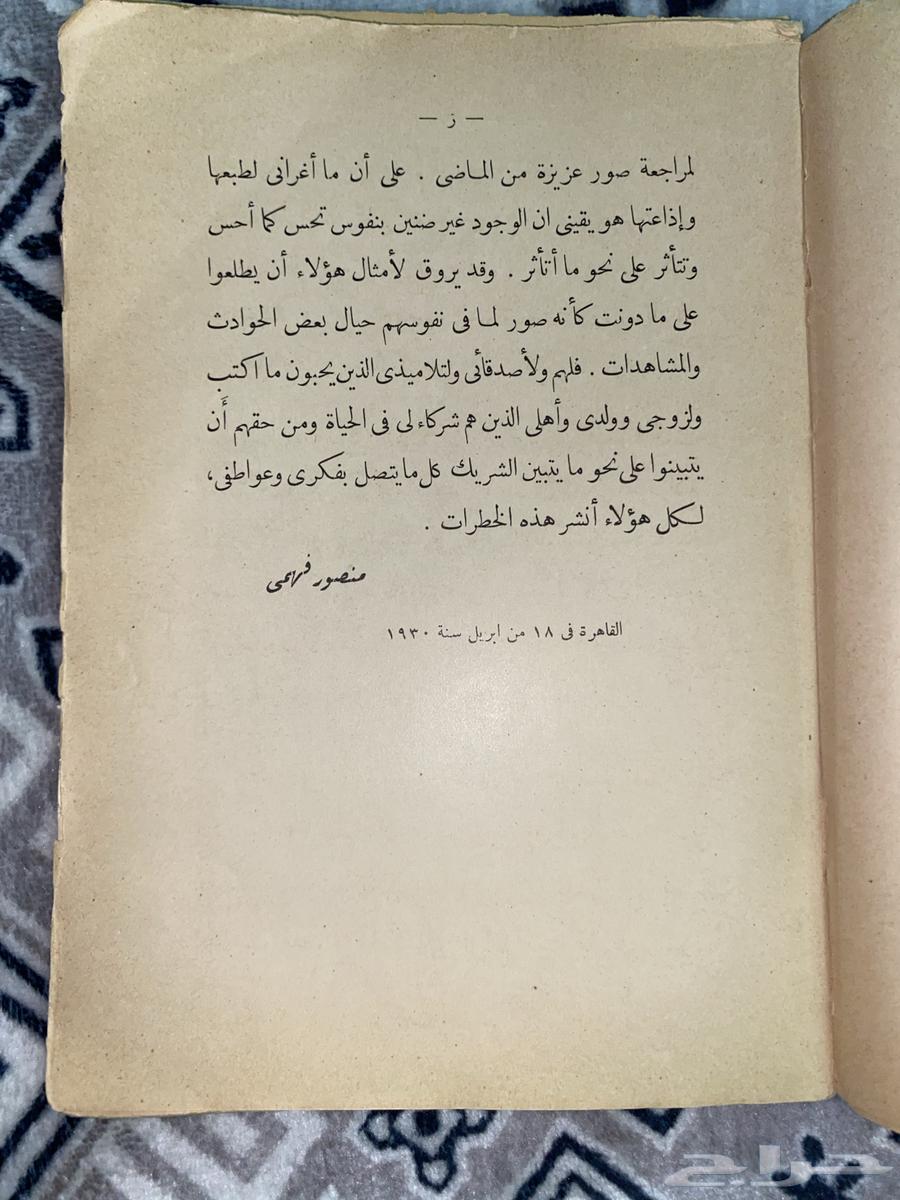 — ز —
لمراجعة صور عزيزة من الماضى . على أن ما أغرانى لطبعها
وإذاعتها هو يقينى ان الوجود غير ضنين بنفوس تحس كما أحس
وتتأثر على نحو ما أتأثر . وقد يروق لأمثال هؤلاء أن يطلعوا
على ما دونت كأنه صور لما فى نفوسهم حيال بعض الحوادث
والمشاهدات . فلهم ولأصدقائى ولتلاميذى الذين يحبون ما اكتب
ولزوجى وولدى وأهلى الذين هم شركاء لى فى الحياة ومن حقهم أن
يتبينوا على نحو ما يتبين الشريك كل ما يتصل بفكرى وعواطفى،
لكل هؤلاء أنشر هذه الخطرات .
منصور فهمى
القاهرة فى ١٨ من ابريل سنة ١٩٣٠
حراج